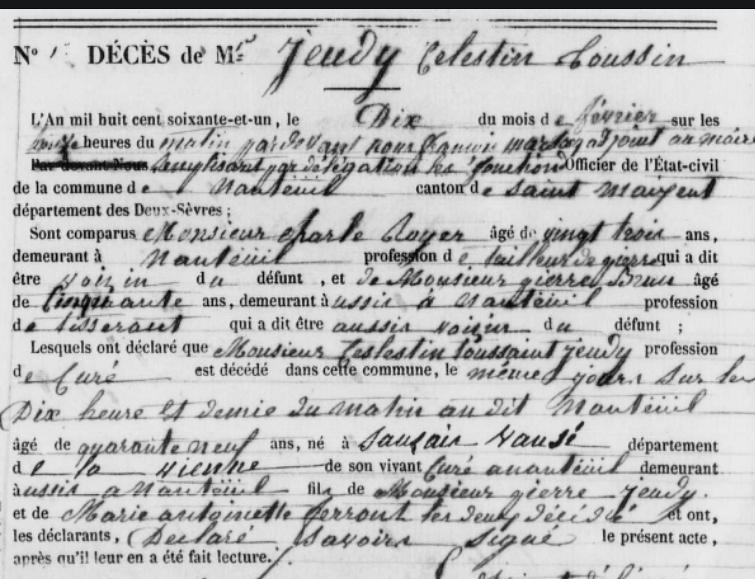 N° DÉCÈS de M. Jeudy Celestin toussin
L'An mil huit cent soixante-et-un, le Dix du mois de février sur les
heures du matin par devant nous adjoint au maire
Par devant Nous Remplisant par délégation les fonction Officier de l'État-civil
de la commune de Nanteüil canton de Saint maixent
département des Deux-Sèvres ;
Sont comparus Monsieur charle Royer âgé de vingt trois ans,
demeurant à Nanteüil profession de tailleur de pierre qui a dit
être voisin du défunt , et de Monsieur pierre Brun âgé
de Cinquante ans, demeurant aussis a Nanteüil profession
de tisserant qui a dit être aussis voisin du défunt ;
Lesquels ont déclaré que Monsieur Celestin toussaint jeudy profession
de Curé est décédé dans cette commune, le même jour sur les
Dix heure et demie du matin au dit Nanteüil
âgé de quarante neuf ans, né à Sauzais Vausé département
de la vienne de son vivant Curé a nanteüil demeurant
aussis a Nanteüil fils de Monsieur pierre jeudy.
et de Marie antoinette ferront les deux décidé et ont,
les déclarants, Declaré Savoir Signé le présent acte,
après qu'il leur en a été fait lecture.